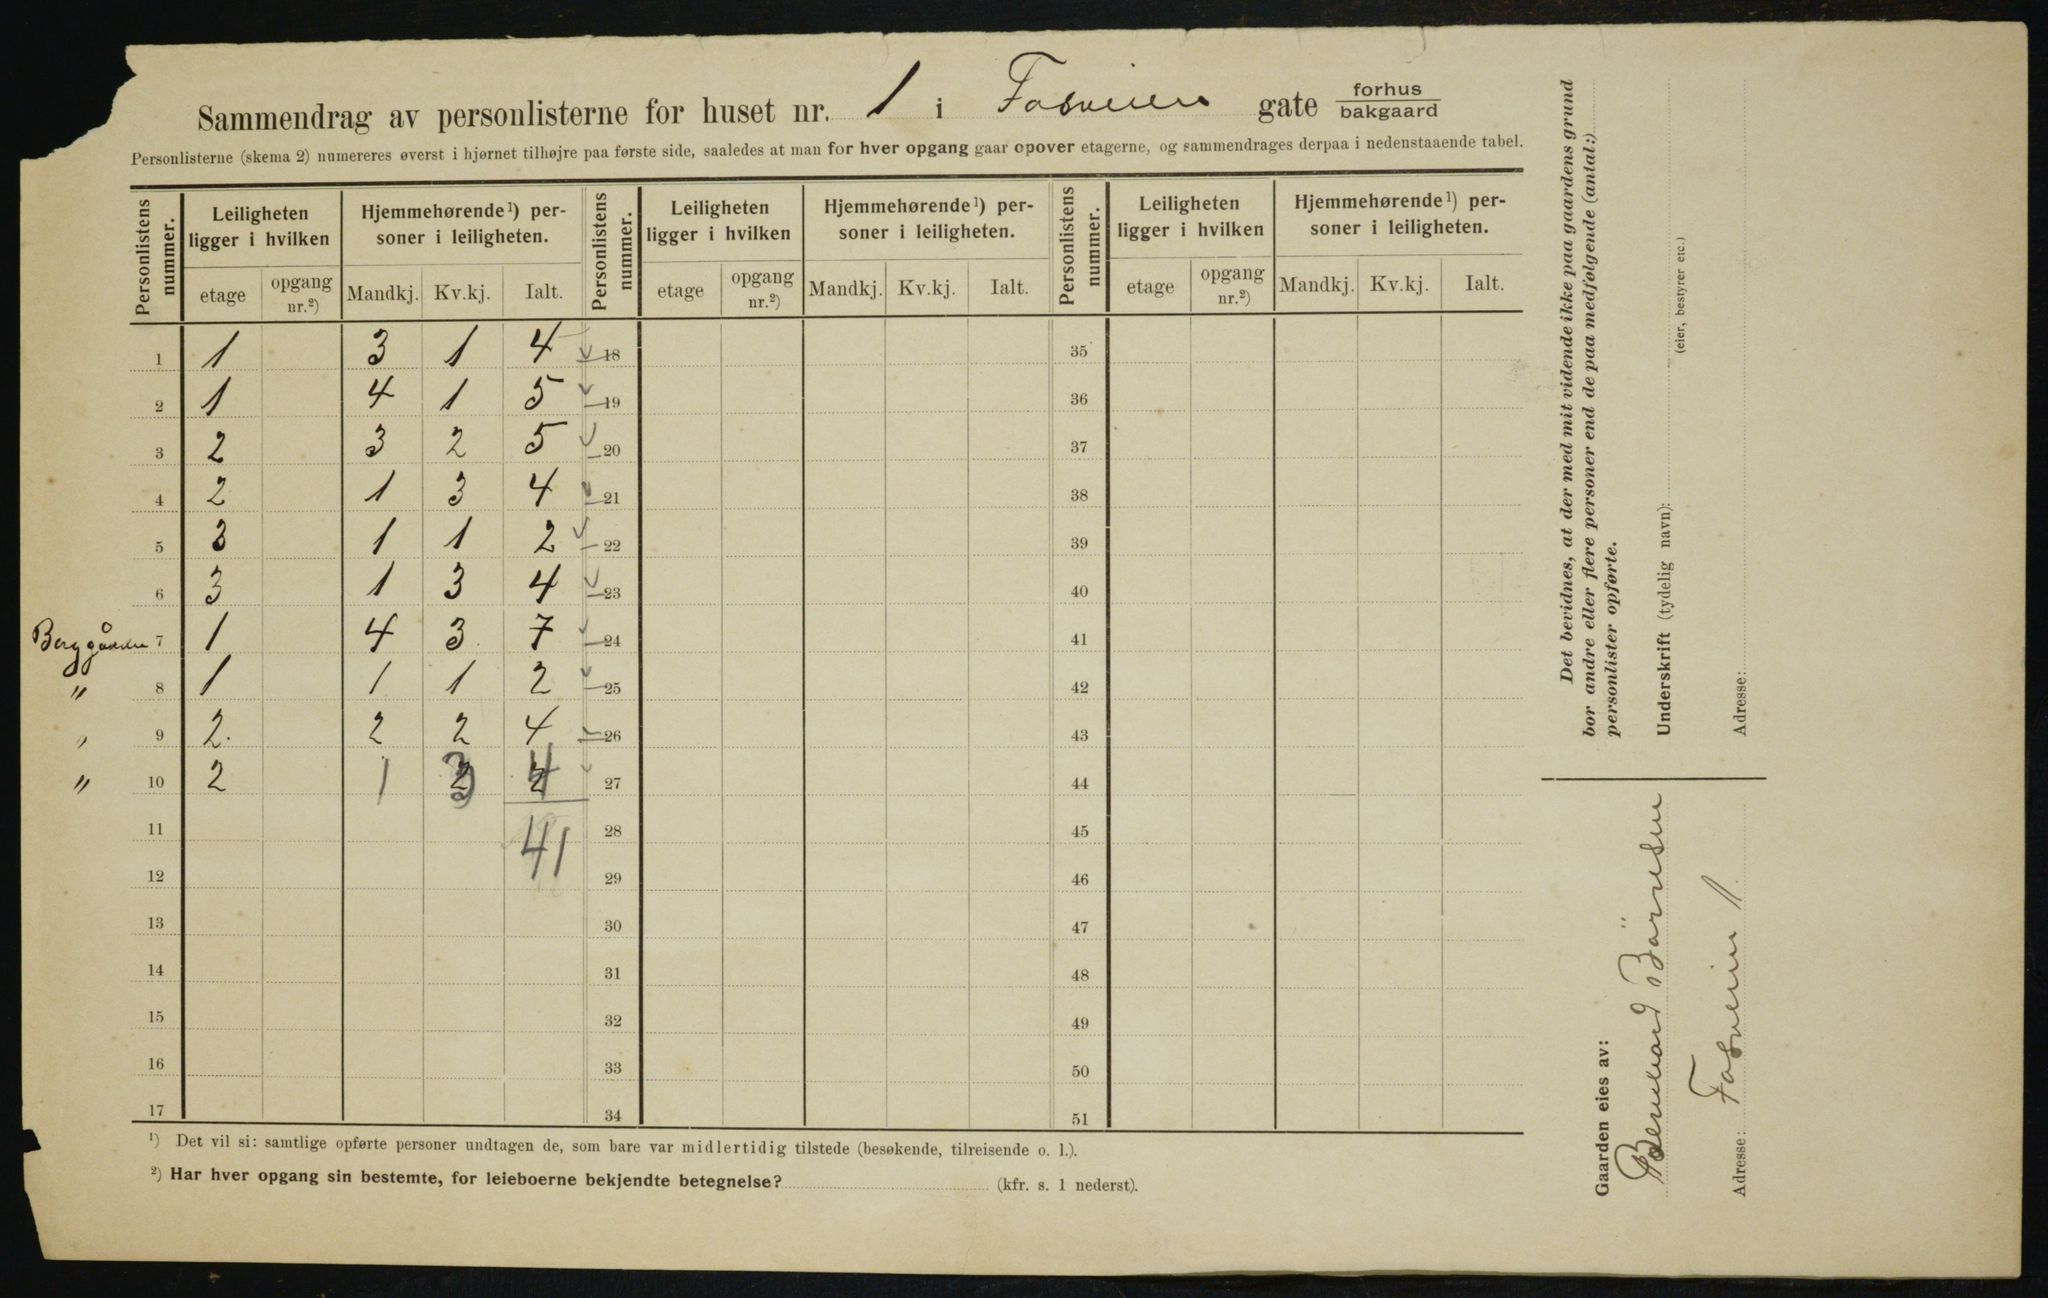 Sammendrag av personlisterne for huset nr. 1 i Fosveien gate forhus/bakgaard
Personlisterne (skema 2) numereres øverst i hjørnet tilhøjre paa første side, saaledes at man for hver opgang gaar opover etagerne, og sammendrages derpaa i nedenstaaende tabel.
Personlistens nummer. Leiligheten ligger i hvilken Hjemmehørende ¹) personer i leiligheten. Personlistens nummer. Leiligheten ligger i hvilken Hjemmehørende ¹) personer i leiligheten. Personlistens nummer. Leiligheten ligger i hvilken Hjemmehørende ¹) personer i leiligheten.
etage opgang nr.²) Mandkj. Kv.kj. Ialt. etage opgang nr.²) Mandkj. Kv.kj. Ialt. etage opgang nr.²) Mandkj. Kv.kj. Ialt.
1 1 3 1 4 18 35
2 1 4 1 5 19 36
3 2 3 2 5 20 37
4 2 1 3 4 21 38
5 3 1 1 2 22 39
6 3 1 3 4 23 40
Berggården 7 1 4 3 7 24 41
" 8 1 1 1 2 25 42
" 9 2. 2 2 4 26 43
" 10 2 1 3 4 27 44
11 41 28 45
12 29 46
13 30 47
14 31 48
15 32 49
16 33 50
17 34 51
¹) Det vil si: samtlige opførte personer undtagen de, som bare var midlertidig tilstede (besøkende, tilreisende o. l.).
²) Har hver opgang sin bestemte, for leieboerne bekjendte betegnelse? (kfr. s. 1 nederst).
Det bevidnes, at der med mit vidende ikke paa gaardens grund
bor andre eller flere personer end de paa medfølgende (antal:)
personlister opførte.
Underskrift (tydelig navn):
(eier, bestyrer etc.)
Adresse:
Gaarden eies av:
Bernhard Börresen
Adresse: Fosveien 1.